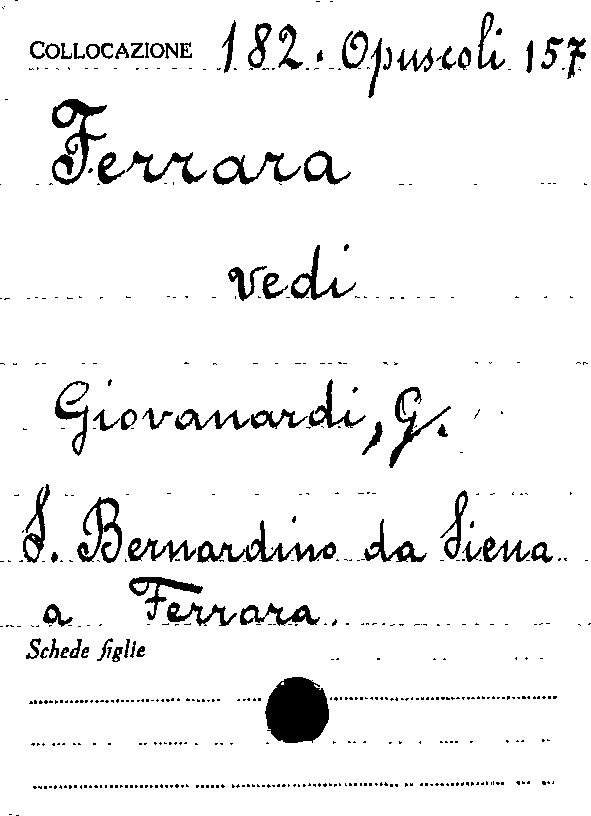 COLLOCAZIONE 182. Opuscoli 157
Ferrara
vedi
Giovanardi, G.
S. Bernardino da Siena
a Ferrara.
Schede figlie